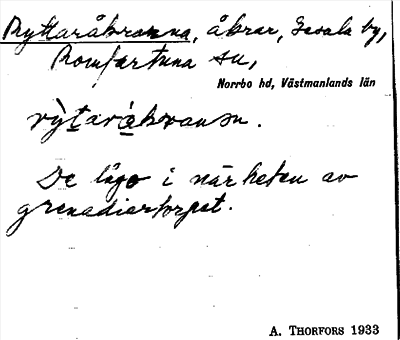 Ryttaråkrarna, åkrar, Gesala by,
Romfartuna sn,
Norrbo hd, Västmanlands län
De lågo i närheten av
grenadiertorpet.
A. THORFORS 1933